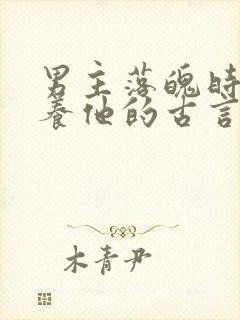 男主落魄时
养他的古言
木青尹